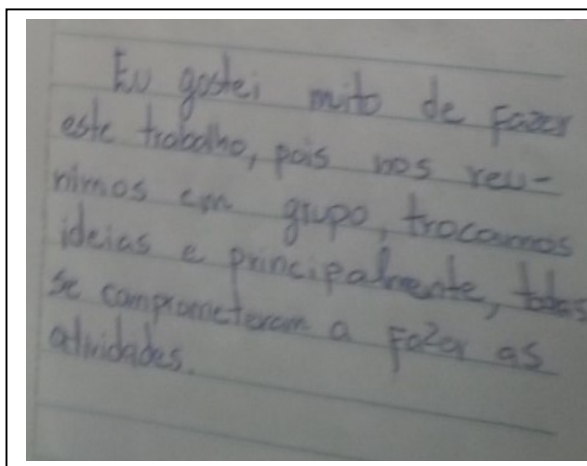 Eu gostei mito de fazer
este trabalho, pois nos reu-
nimos em grupo, trocamos
ideias e principalmente, todas
se comprometeram a fazer as
atividades.